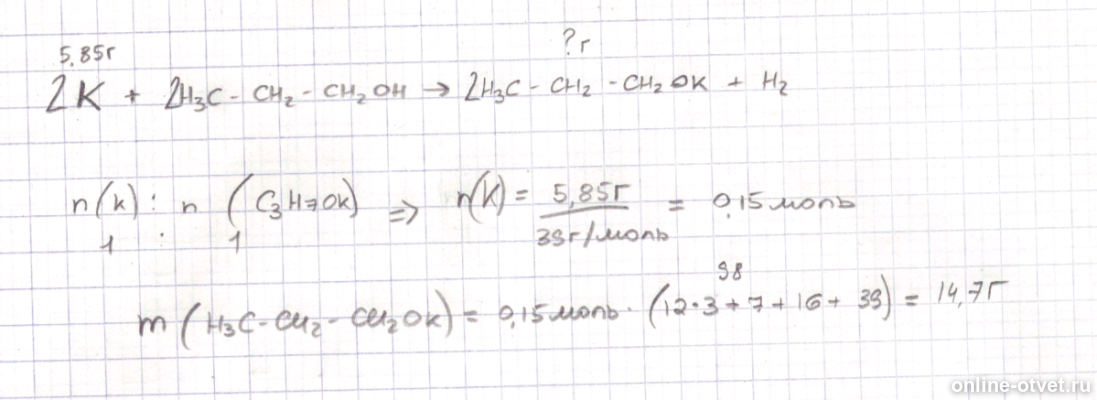 5,85г ?г
2K + 2H₃C - CH₂ - CH₂OH → 2H₃C - CH₂ - CH₂OK + H₂
n(k) : n (C₃H₇OK) => n(K) = 5,85г / 39г/моль = 0,15 моль
1 : 1
98
m (H₃C-CH₂-CH₂OK) = 0,15 моль · (12·3+7+16+39) = 14,7г
online-otvet.ru